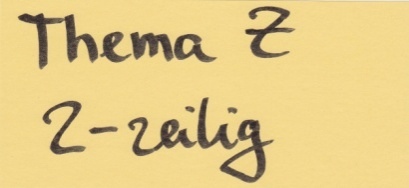 Thema Z
2-zeilig